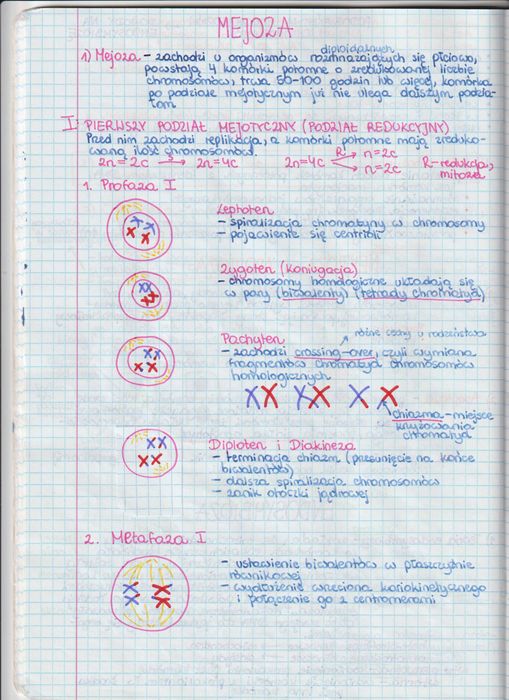 MEJOZA
diploidalnych
1) Mejoza - zachodzi u organizmów rozmnażających się płciowo,
powstają 4 komórki potomne o zredukowanej liczbie
chromosomów, trwa 50-100 godzin lub więcej, komórka
po podziale mejotycznym już nie ulega dalszym podzia-
łom
I: PIERWSZY PODZIAŁ MEJOTYCZNY (PODZIAŁ REDUKCYJNY)
Przed nim zachodzi replikacja, a komórki potomne mają zreduko-
waną ilość chromosomów.
2n=2c → 2n=4c 2n=4c R! n=2c
n=2c
R-redukcja,
mitoza
1. Profaza I
Leptoten
- spiralizacja chromatyny w chromosomy
- pojawienie się centrioli
Zygoten (koniugacja)
- chromosomy homologiczne układają się
w pary (biwalenty) (tetrady chromatyd)
Pachyten
różne cechy u rodzeństwa
- zachodzi crossing-over, czyli wymiana
fragmentów chromatyd chromosomów
homologicznych
chiazma - miejsce
krzyżowania
chromatyd
Diploten i Diakineza
- terminacja chiazm (przesunięcie na końce
biwalentów)
- dalsza spiralizacja chromosomów
- zanik otoczki jądrowej
2. Metafaza I
- ustawienie biwalentów w płaszczyźnie
równikowej
- wydłużenie wrzeciona kariokinetycznego
i połączenie go z centromerami